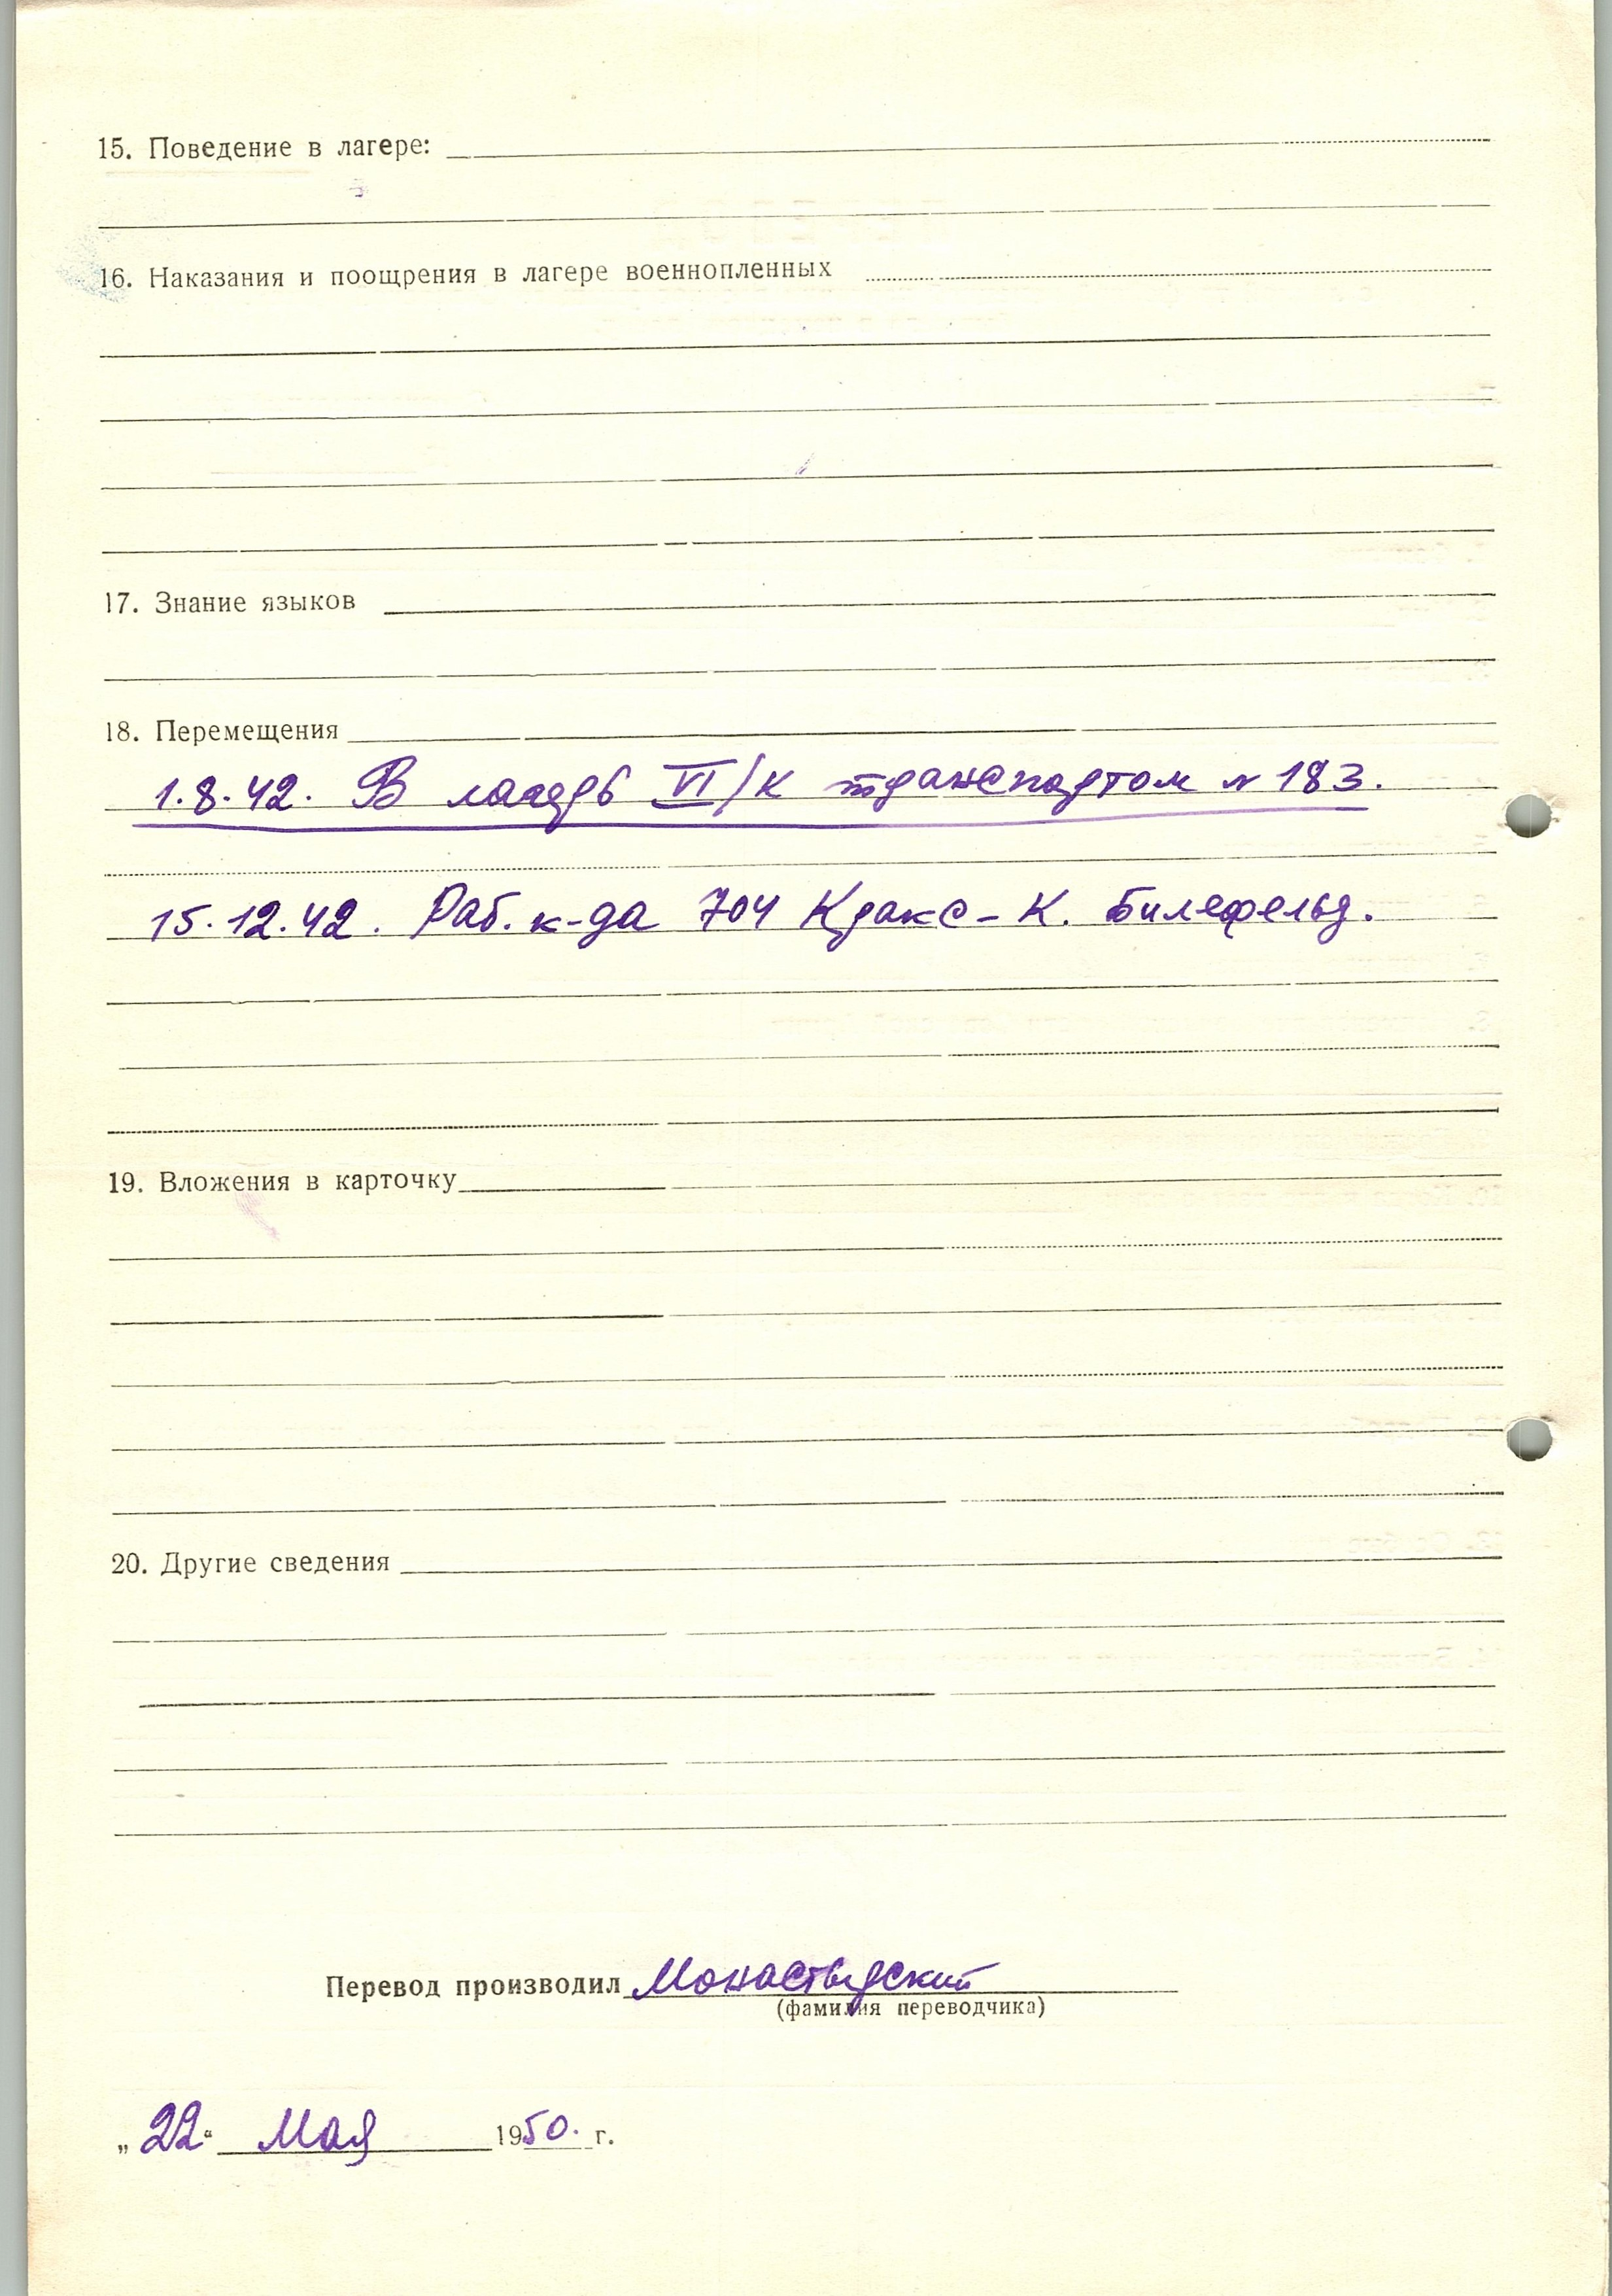 15. Поведение в лагере:
16. Наказания и поощрения в лагере военнопленных
17. Знание языков
18. Перемещения
1.8.42. В лагерь VI/К транспортом № 183.
15.12.42. Раб. к-да 704 Кракс-К. Билефельд.
19. Вложения в карточку
20. Другие сведения
Перевод производил Монастырский
(фамилия переводчика)
„22“ Мая 1950. г.